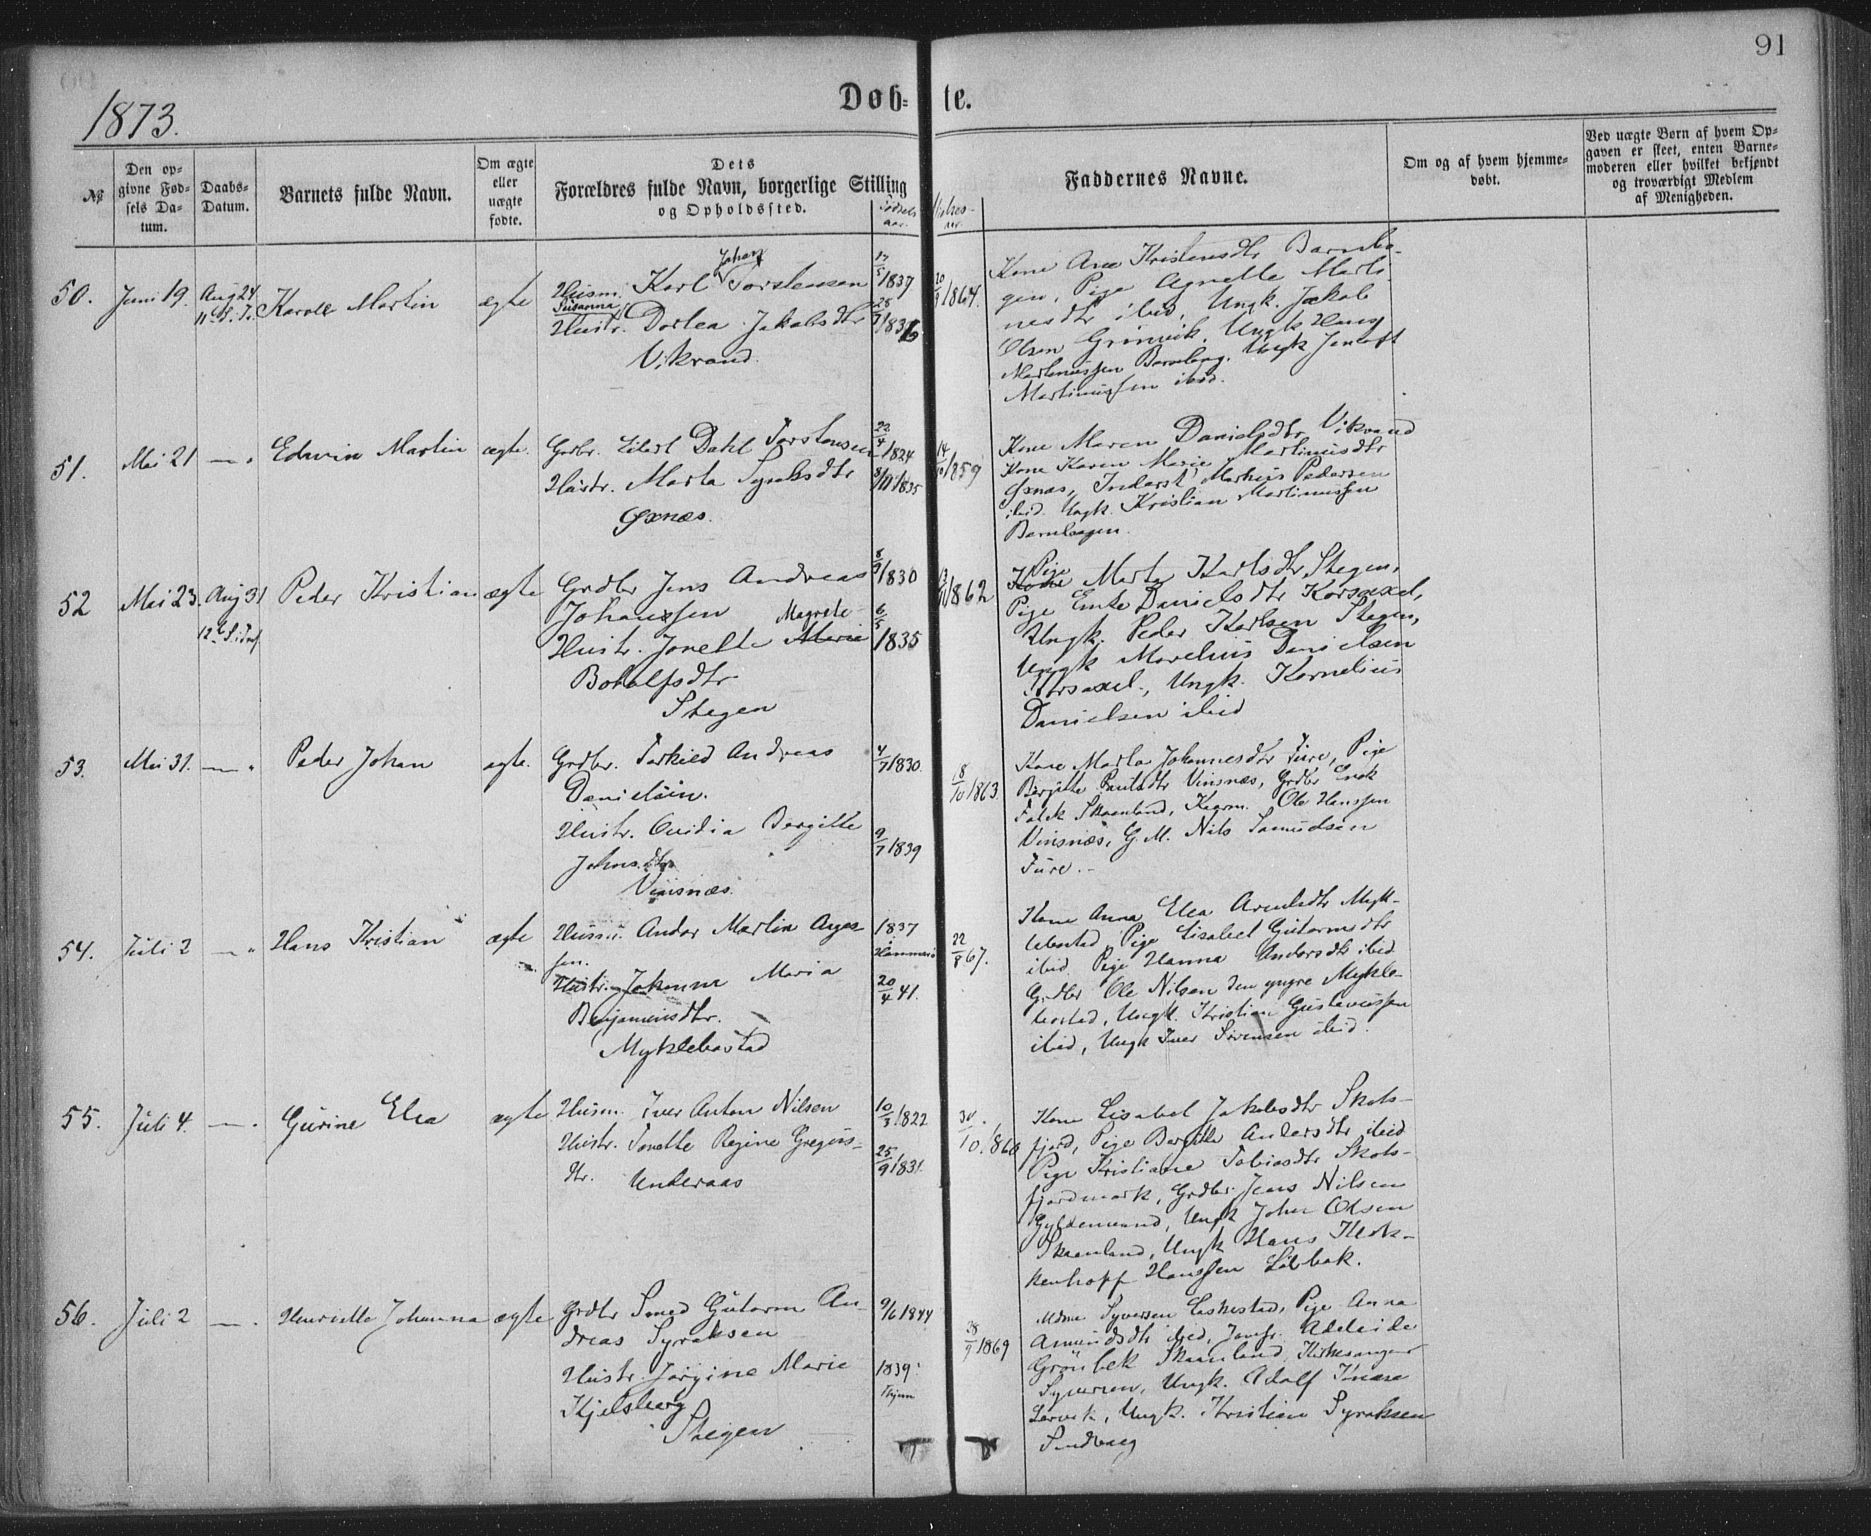 91
1873.
Døb- te.
№
Den op-
givne Fød-
sels Da-
tum.
Daabs-
Datum.
Barnets fulde Navn.
Om ægte
eller
uægte
fødte.
Dets
Forældres fulde Navn, borgerlige Stilling
og Opholdssted.
Fødsels
aar.
Vielses-
aar.
Faddernes Navne.
Om og af hvem hjemme-
døbt.
Ved uægte Børn af hvem Op-
gaven er skeet, enten Barne-
moderen eller hvilket bekjendt
og troværdigt Medlem
af Menigheden.
50. Juni 19. Aug 24
11 S. T.
Karoll Martin
ægte
Johan
Husm. Karl Torstensen
Susanna
Hustr. Dortea Jakobsdtr
Vikrand.
17/5 1837
28/7 1836
20/9 1864.
Kone Ane Kristensdtr Barnha-
gen, Pige Agnette Marti-
nesdtr ibid, Ungk. Jakob
Olsen Grinvik, Ungk Hans
Martinussen Barnhag. Ungk Jentoft
Martinussen ibid.
51. Mai 21 — "
Edvin Martin
ægte.
Grdbr. Eilert Dahl Torstensen
Hustr. Marta Syraksdtr
Øxnæs.
22/4 1824
8/11 1835
14/10 1859
Kone Maren Danielsdtr Vikrand
Kone Karen Marie Martinusdtr
Øxnæs, Inderst Markus Pedersen
ibid. Ungk. Kristian Martinussen
Barnhagen.
52 Mai 23. Aug 31
12te S. Tref.
Peder Kristian
ægte
Grdbr Jens Andreas
Johanssen
Magrete
Hustr. Jonette Marie
Botolfsdtr
Stegen
8/9 1830
6/5 1835
1862
Pige
Kone Marta Karlsdtr Stegen,
Pige Emte Danielsdtr Korsaxel,
Ungk. Peder Karlsen Stegen,
Ungk Marelius Danielsen
Korsaxel, Ungk. Kornelius
Danielsen ibid
53. Mai 31. — "
Peder Johan
ægte.
Grdbr. Torkild Andreas
Danielsen.
Hustr. Ovidia Bergitte
Johnsdtr
Vinsnæs.
4/7 1830.
9/7 1839
18/10 1863.
Kone Marta Johannesdtr Fure, Pige
Bergitte Paulsdtr Vinsnæs, Grdbr Enok
Falck Skaanland, Kaarm. Ole Hanssen
Vinsnæs, G. M. Nils Samuelsen
Fure.
54. Juli 2 — "
Hans Kristian
ægte
Husm. Andor Martin Aages-
sen.
Hustr. Johanna Maria
Benjaminsdtr.
Myklebostad
1837
Hammerö
20/4 41.
22/8 67.
Kone Anna Elea Arentsdtr Mykl-
lebostad, Pige Lisabet Gutormsdtr
ibid. Pige Hanna Andersdtr ibid
Grdbr Ole Nilsen den yngre Mykle-
bostad, Ungk. Kristian Gustavussen
ibid, Ungk Iver Sørensen ibid.
55. Juli 4. — .
Gurine Elea
ægte
Husm. Iver Anton Nilsen
Hustr. Tonette Regine Gregus-
dtr. Underaas
10/3 1822
25/9 1831.
30/10 1860
Kone Lisabet Jakobsdtr Skots-
fjord, Pige Bergitte Andersdtr ibid
Pige Kristiane Tobiasdtr Skots-
fjordmark, Grdbr. Jens Nilsen
Gyldenvand, Ungk Johan Olsen
Skaanland, Ungk Hans Klok-
kenhoff Hanssen Libbak.
56. Juli 2 — .
Henriette Johanna
ægte
Grdbr Smed Gutorm An-
dreas Syraksen
Hustr. Jørgine Marie
Kjelsberg
Stegen
9/6 1844
1839.
28/9 1869
Mdme Syversen Laskestad, Pige Anna
Amundsdtr ibid, Jomfr. Adeleide
Grønbek Skaanland, Kirkesanger
Syversen, Ungk. Adolf Knare
Lervik, Ungk. Kristian Syraksen
Sundvaag